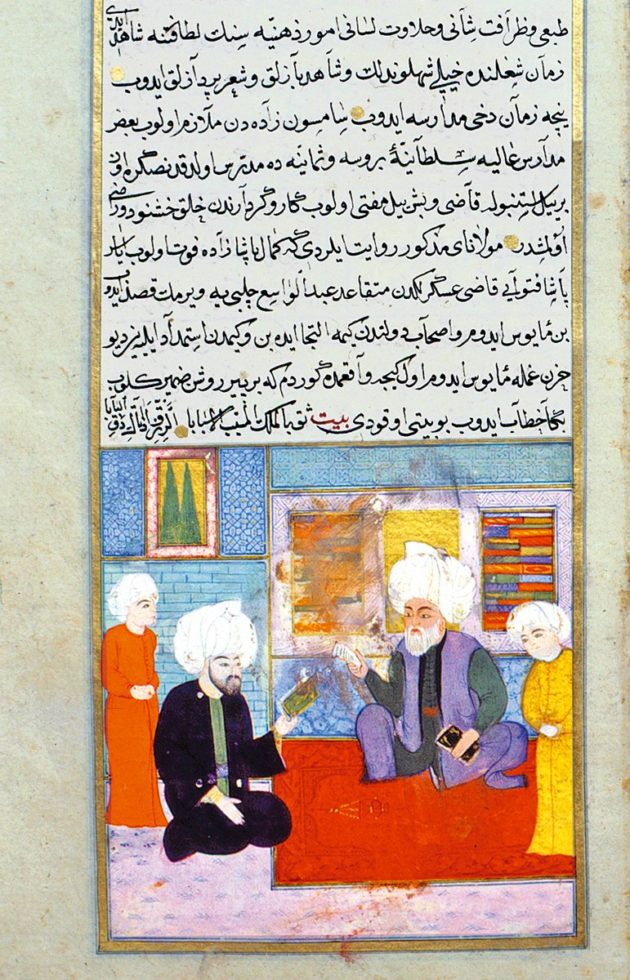 طبعی وظرافت شانی وحلاوت لسانی امور ذهنیه سنك لطافتنه شاهد
زمان شغلنده خیلی شهلوندلك وشاهدبازلق وشعر پردازلق ایدوب
نیجه زمان دخی مدارسه ایدوب سامسون زاده دن ملازم اولوب بعض
مدارس عالیه سلطانیۀ بروسه وثمانیه ده مدرس اولدقدنصکره
بر ییل استنبوله قاضی وبش ییل مفتی اولوب خلق خشنود وراضی
اولمشدر مولانای مذکور روایت ایلردی که کمال پاشا زاده فوت اولوب
پاشا فتوایی قاضی عسکرلکدن متقاعد عبدالواسع چلبی یه ویرمك قصد ایدوب
بن مأیوس ایدوم واصحاب دولتدن کیمه التجا ایده بن وکیمدن استمداد ایلیه بن دیو
حزن غمله مأیوس ایدوم اول کیجه واقعه مده کوردم که بر پیر روشن ضمیر کلوب
بکا خطاب ایدوب بو بیتی اوقودی بیت ثق بالملك المسبب الاسبابا